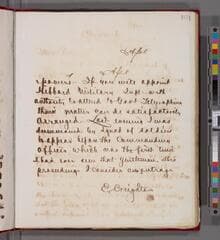 Apl
Apl
powers. If you will appoint
Hibbard Military Supt with
authority to attend to Govt Telegraphing
these matters can be satisfactorily
arranged. Last evening I was
summoned by squad of soldiers
to appear before the Commanding
officer which was the first time
I had ever seen that gentleman. This
proceeding I consider an outrage
E. Creighton